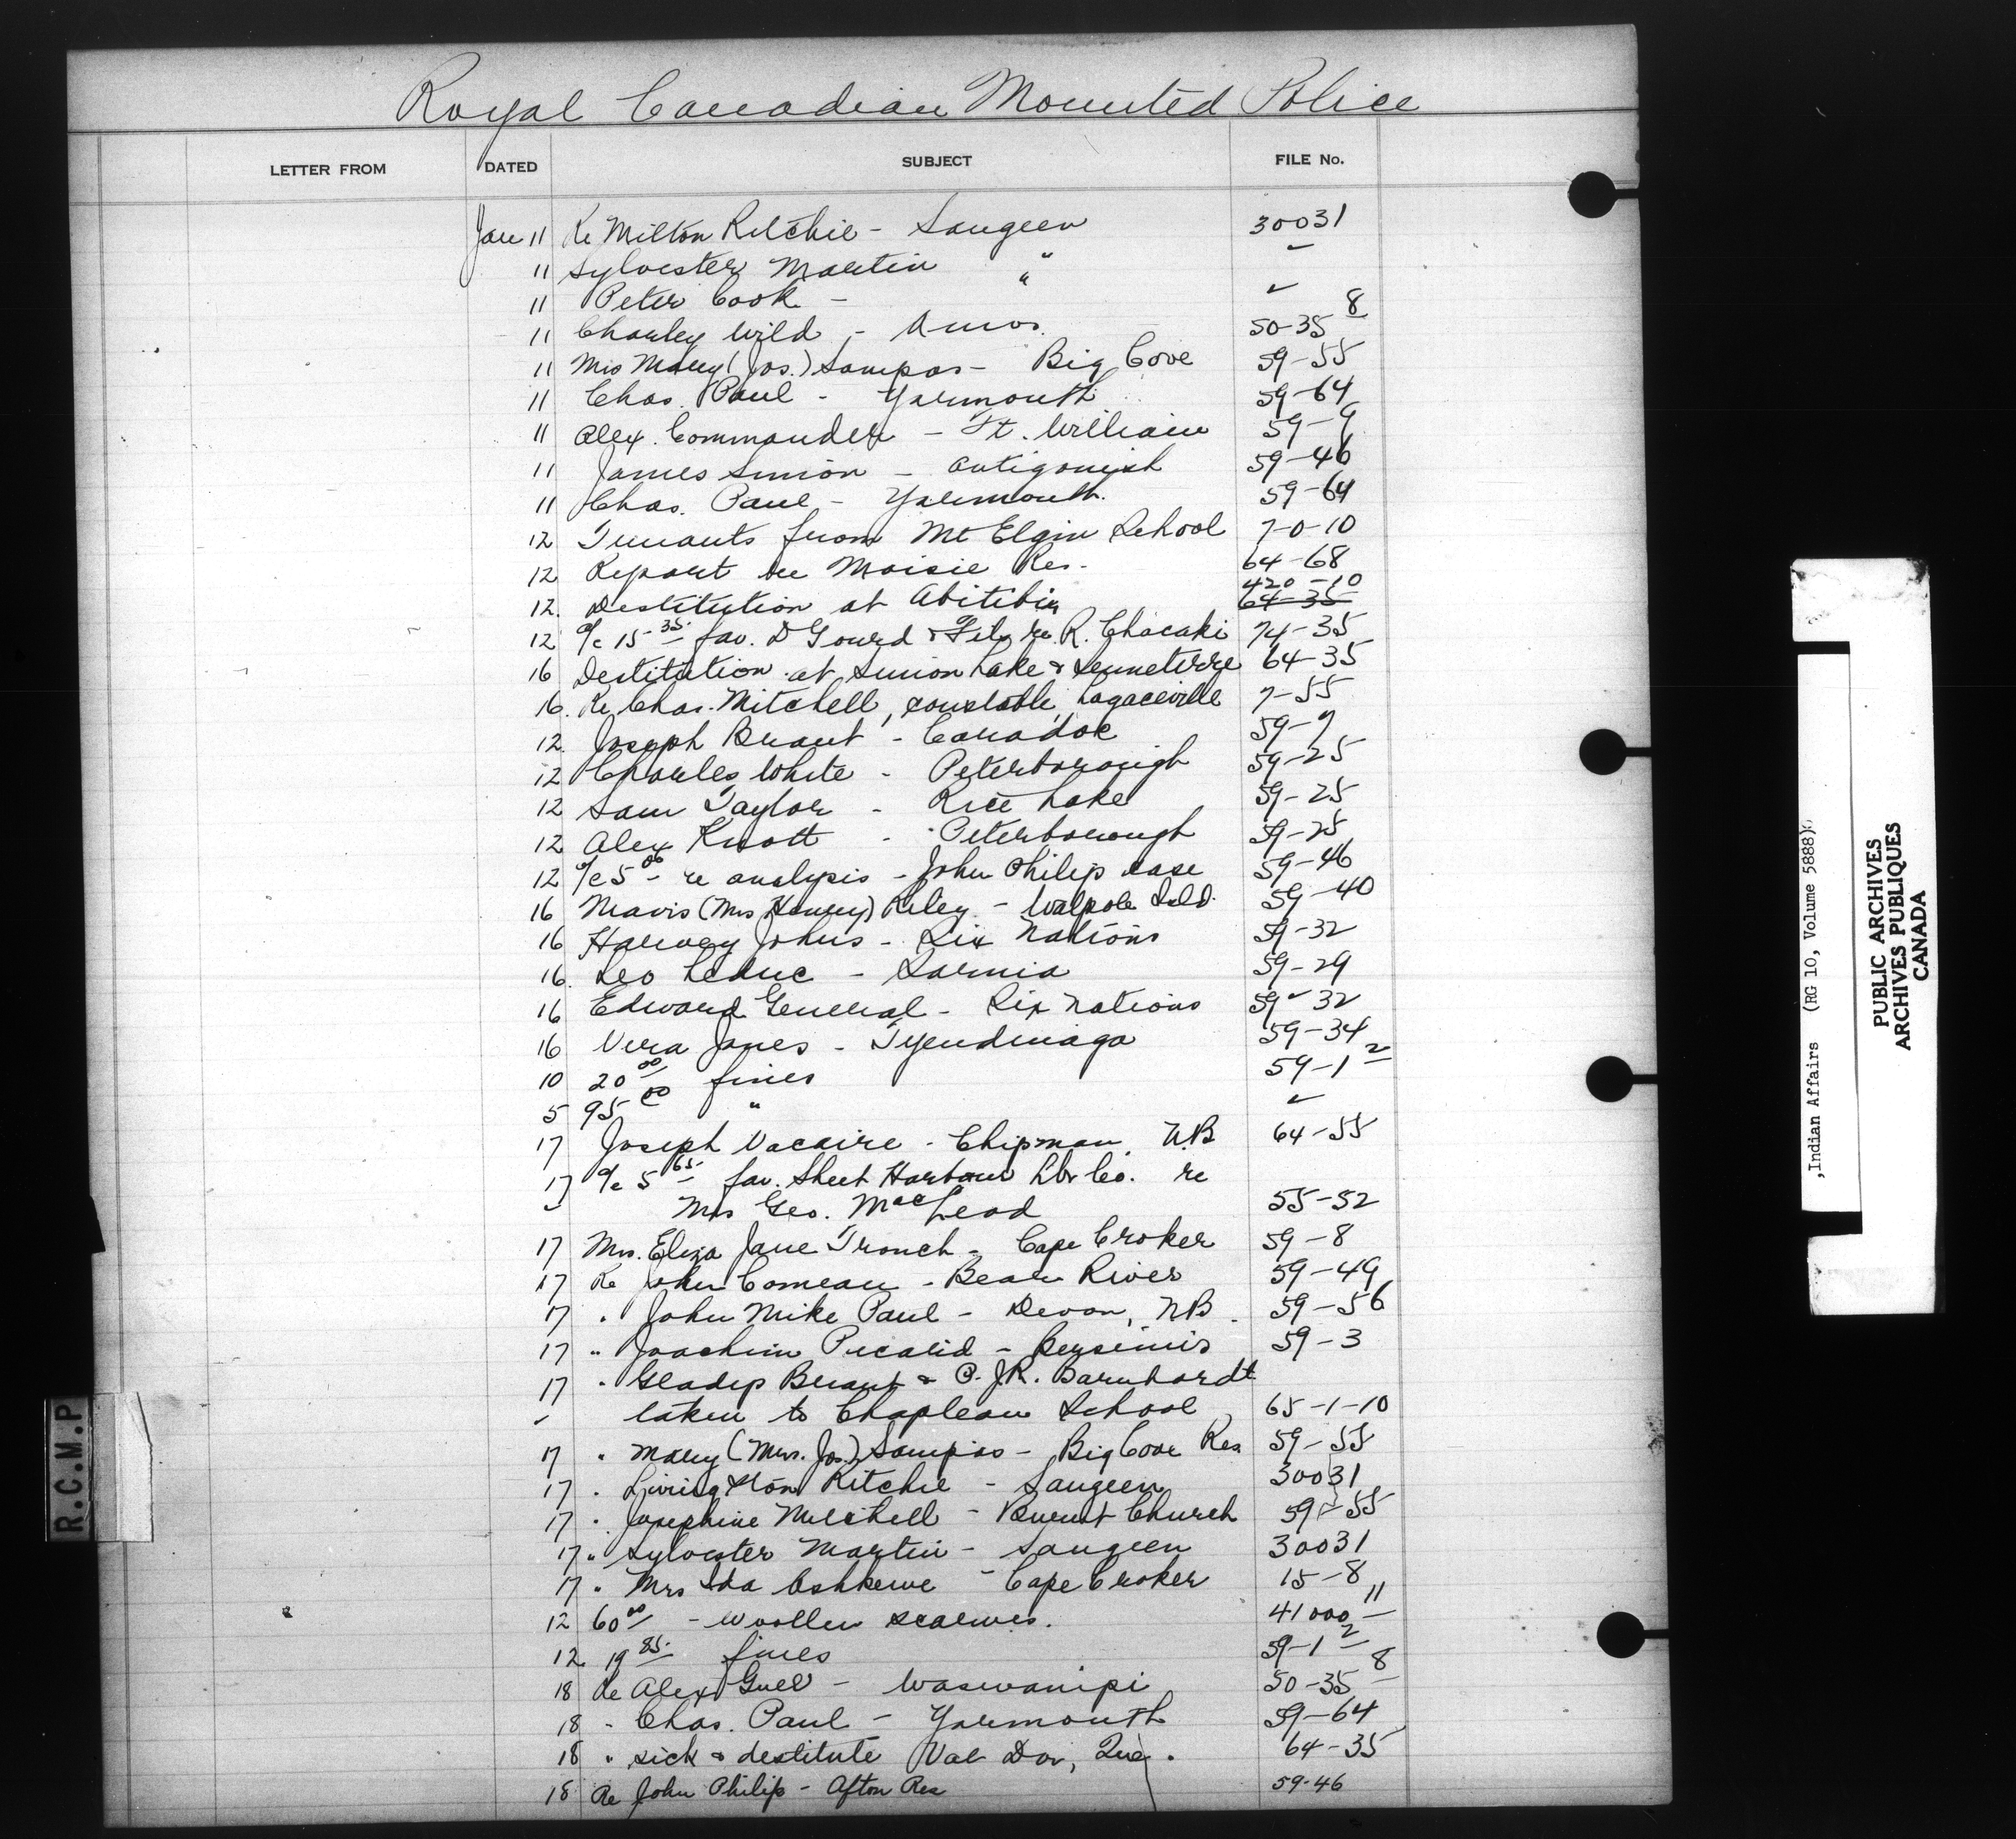 Royal Canadian Mounted Police
LETTER FROM DATED SUBJECT FILE No.
Jan 11 Re Milton Ritchie - Saugeen 30031
11 Sylvester Martin " "
11 Peter Cook - " "
11 Charley Wild - Amos. 50-35 8
11 Mrs Mary (Jos.) Sampas - Big Cove 59-55
11 Chas. Paul - Yarmouth 59-64
11 Alex. Commander - Ft. William 59-9
11 James Simon - Antigonish 59-46
11 Chas. Paul - Yarmouth. 59-64
12 Truants from Mt Elgin School 7-0-10
12 Report re Moisie Res. 64-68
12. Destitution at Abitibi 420-10 64-35
12 a/c 15 35 fav. D Gourd & Fils re R. Chacaki 74-35
16 Destitution at Simon Lake & Senneterre 64-35
16. Re Chas. Mitchell, constable, Lagaceville 7-55
12. Joseph Brant - Caradoc 59-7
12 Charles White - Peterborough 59-25
12 Sam Taylor - Rice Lake 59-25
12 Alex Knott - Peterborough 59-25
12 a/c 5 00 - re analysis - John Philip case 59-46
16 Mavis (Mrs Henry) Riley - Walpole Isld. 59-40
16 Harvey Johns - Six Nations 59-32
16. Leo Leduc - Sarnia 59-29
16 Edward General - Six Nations 59-32
16 Vera Janes - Tyendinaga 59-34
10 20 00 fines 59-1 2
5 95 00 " "
17 Joseph Vacaire - Chipman, N.B 64-55
17 a/c 5 65 fav. Sheet Harbour Lbr Co. re
" Mrs Geo. MacLeod 55-52
17 Mrs. Eliza Jane Tronch - Cape Croker 59-8
17 Re John Comeau - Bear River 59-49
17 " John Mike Paul - Devon, N.B. 59-56
17 " Joachim Picard - Bersimis 59-3
17 " Gladys Brant & P. J.R. Barnhardt
" taken to Chapleau School 65-1-10
17 " Mary (Mrs. Jos.) Sampias - Big Cove Res 59-55
17 " Livingston Ritchie - Saugeen 30031
17 " Josephine Mitchell - Burnt Church 59-55
17 " Sylvester Martin - Saugeen 30031
17 " Mrs Ida Ashkewe - Cape Croker 15-8
12 60 00 - woollen scarves. 41000 11
12 19 85 fines 59-1 2
18 Re Alex Gull - Waswanipi 50-35 8
18 " Chas. Paul - Yarmouth 59-64
18 " sick & destitute Val Dor, Que. 64-35
18 Re John Philip - Afton Res 59-46
R.C.M.P
Indian Affairs (RG 10, Volume 5888)
PUBLIC ARCHIVES
ARCHIVES PUBLIQUES
CANADA